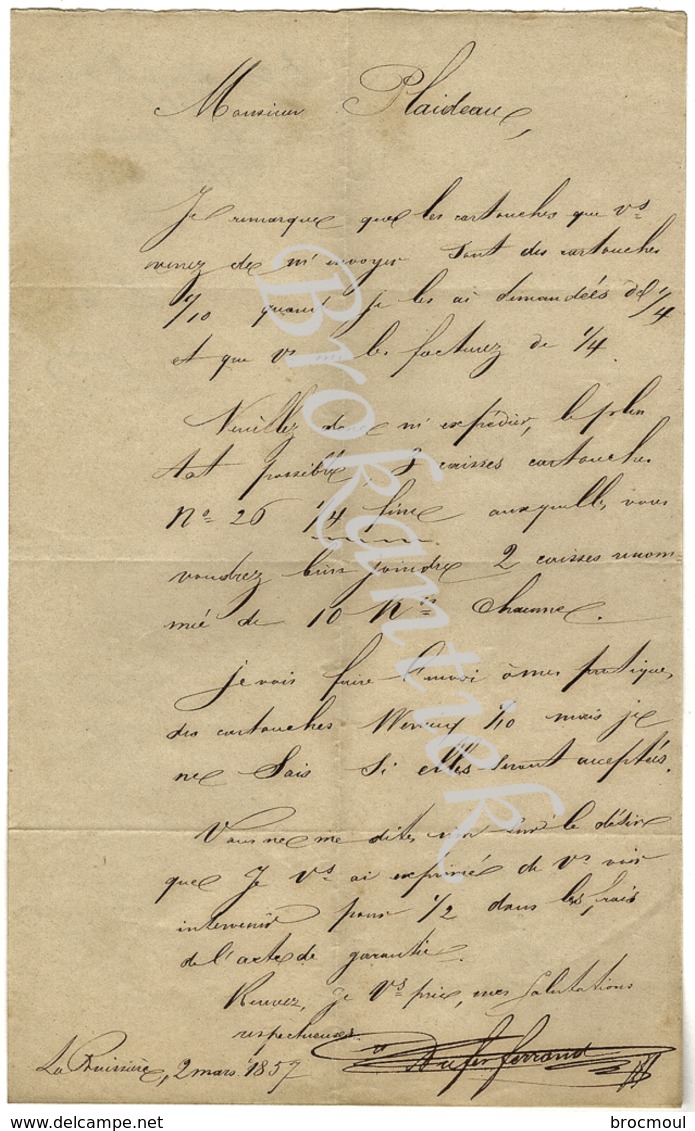 Monsieur Plaideau,
Je remarque que les cartouches que vs
venez de m'envoyer sont des cartouches
1/10 quand je les ai demandées de 1/4
et que vs me les facturez de 1/4.
Veuillez donc m'expédier, le plus
tot possible, 3 caisses cartouches
No 26 1/4 fine auxquelles vous
voudrez bien joindre 2 caisses
de 10 Ks Chacune.
je vais faire l'envoi à mes pratiques
des cartouches 1/10 mais je
ne Sais Si elles seront acceptées.
Vous ne me dites rien sur le désir
que Je Vs ai exprimé de Vs voir
intervenir pour 1/2 dans les frais
de l'acte de garantie.
Recevez, Je Vs prie, mes Salutations
respectueuses.
La Buissière, 2 mars 1857
ferrand
Brokantick
www.delcampe.net
brocmoul